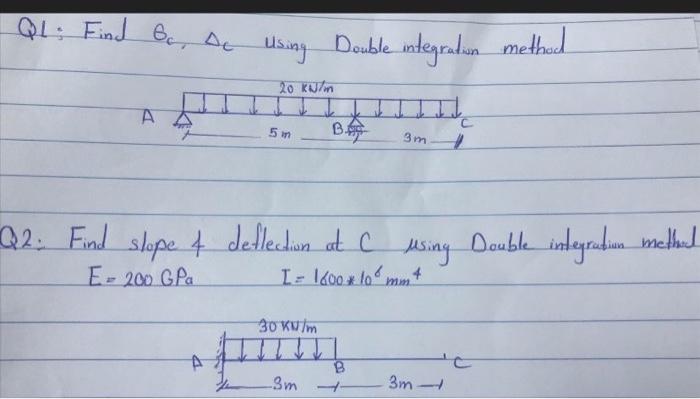 Q1: Find θc, Δc using Double integration method
20 KN/m
A
B
C
5m
3m
Q2: Find slope & deflection at C using Double integration method
E = 200 GPa I = 1600 * 10⁶ mm⁴
30 KN/m
A
B
C
3m
3m